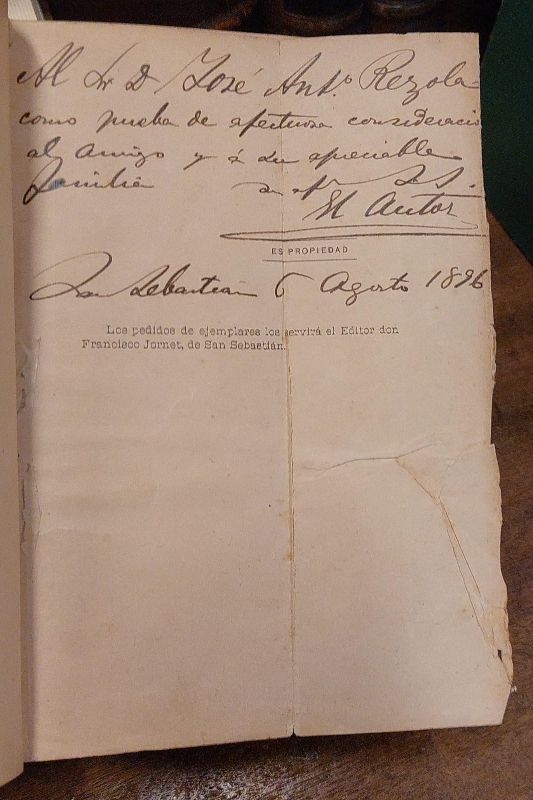 Al Sr D José Antº Rezola
como prueba de afectuosa consideració
al amigo y á su apreciable
familia su af S. S.
El Autor
ES PROPIEDAD
San Sebastian 6 Agosto 1896
Los pedidos de ejemplares los servirá el Editor don
Francisco Jornet, de San Sebastián.